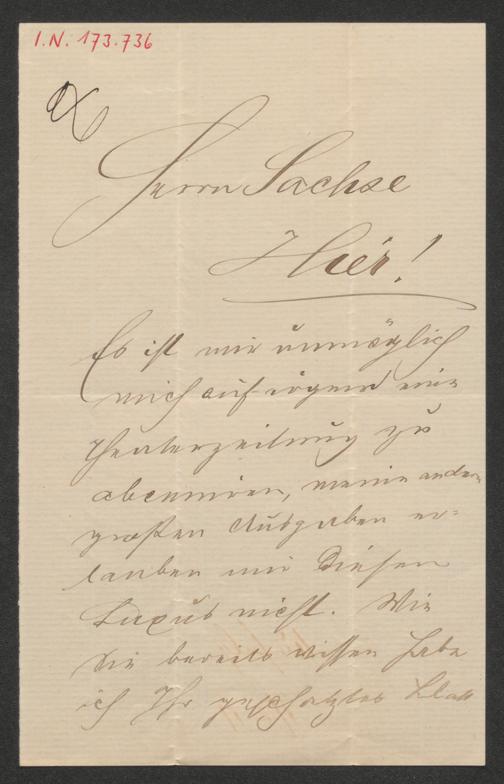 I.N. 173.736
Herrn Sachse
Hier!
Es ist mir unmöglich
mich auf irgend eine
Theaterzeitung zu
abonniren, meine andern
großen Ausgaben er-
lauben mir diesen
Luxus nicht. Wie
Sie bereits wissen habe
ich Ihr geschätztes Blatt